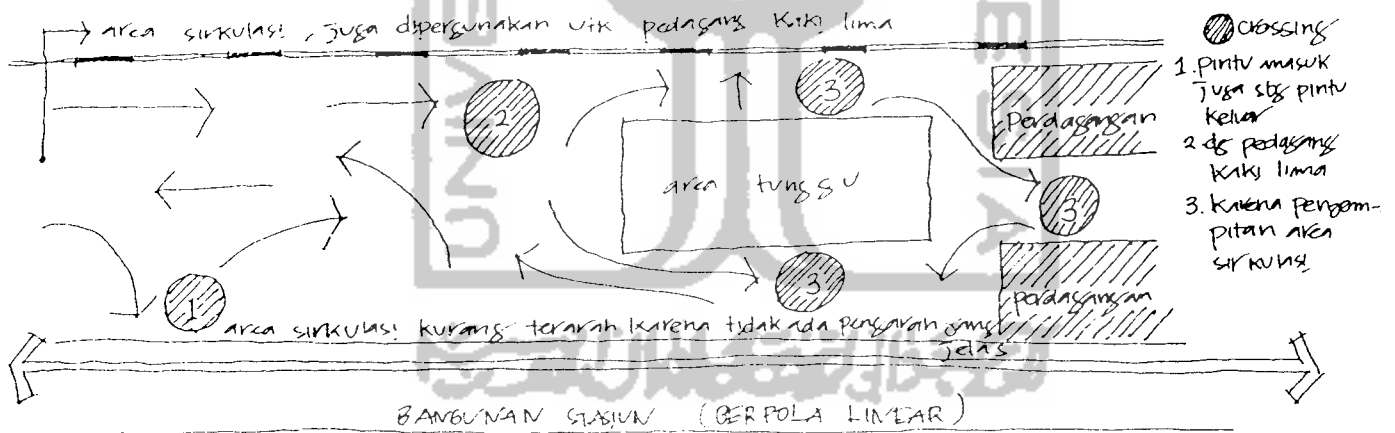 area sirkulasi, juga dipergunakan utk pedagang kaki lima
crossing
1. pintu masuk
juga sbg pintu
keluar
2 dg pedagang
kaki lima
3. karena pengem-
pitan area
sirkulasi
2
3
perdagangan
area tunggu
3
3
1
perdagangan
area sirkulasi kurang terarah karena tidak ada pengarah yang
jelas
BANGUNAN STASIUN (BERPOLA LINEAR)